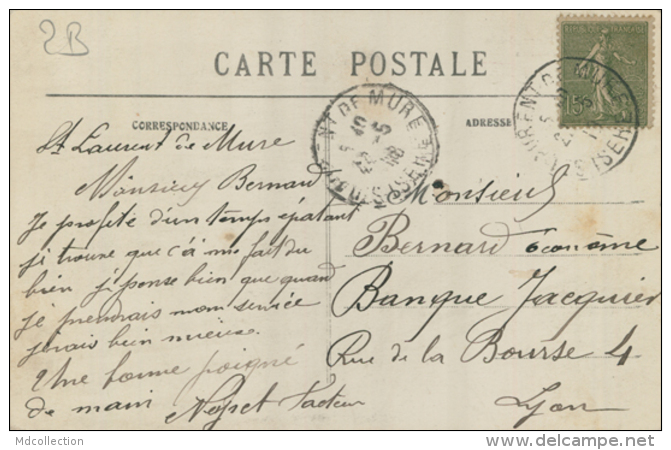 2B
CARTE POSTALE
CORRESPONDANCE
ADRESSE
REPUBLIQUE FRANÇAISE
15c
ST LAURENT DE MURE
ISERE
St Laurent de Mure
Monsieur Bernard
Je profite d'un temps épatant
je trouve que c'a me fait du
bien je pense bien que quand
je prendrais mon service
serais bien mieux.
Une bonne poigné
de main
facteur
Monsieur
Bernard Econôme
Banque Jacquier
Rue de la Bourse 4
Lyon
Mdcollection
www.delcampe.net